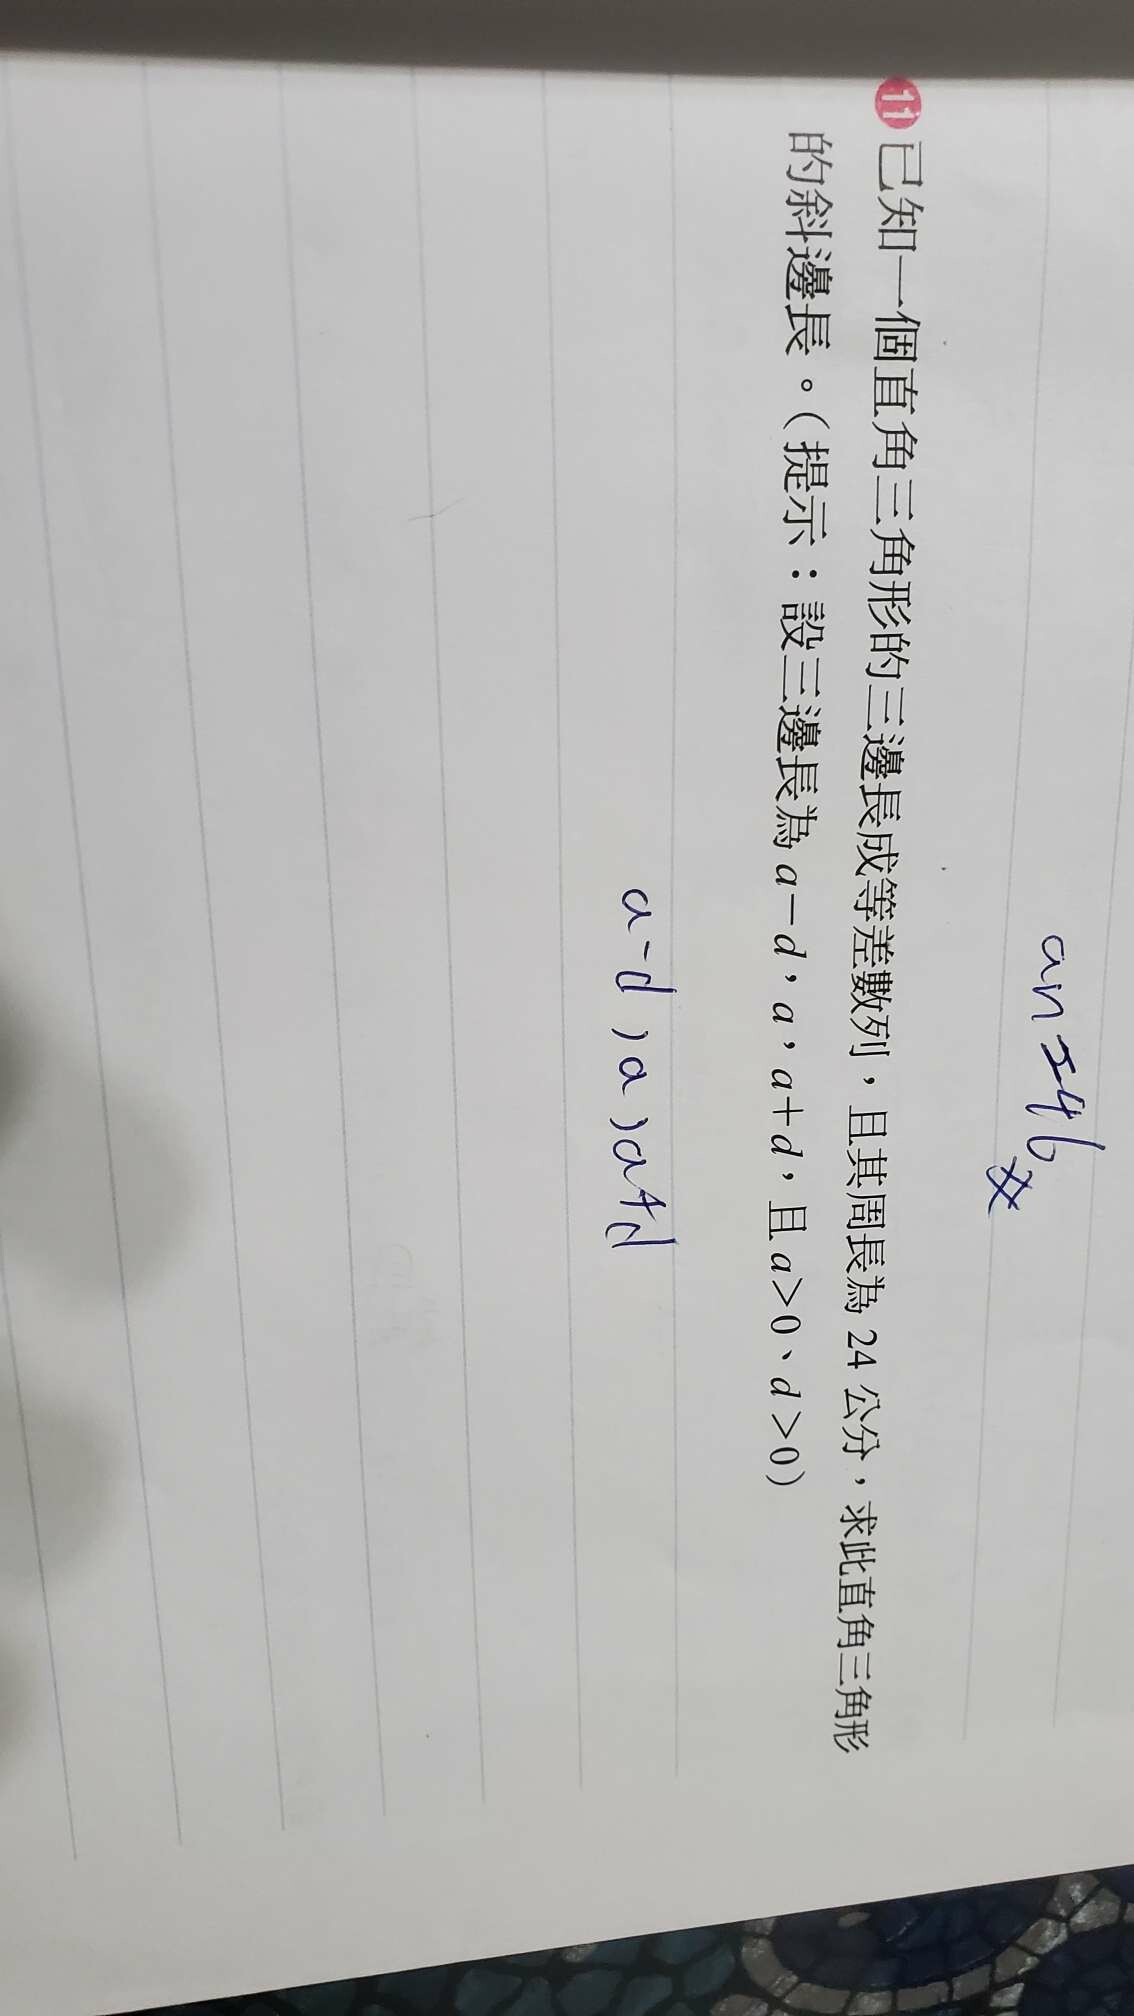 an=46
⓫已知一個直角三角形的三邊長成等差數列,且其周長為 24 公分,求此直角三角形
的斜邊長。(提示:設三邊長為 a-d,a,a+d,且 a>0、d>0)
a-d,a,a+d